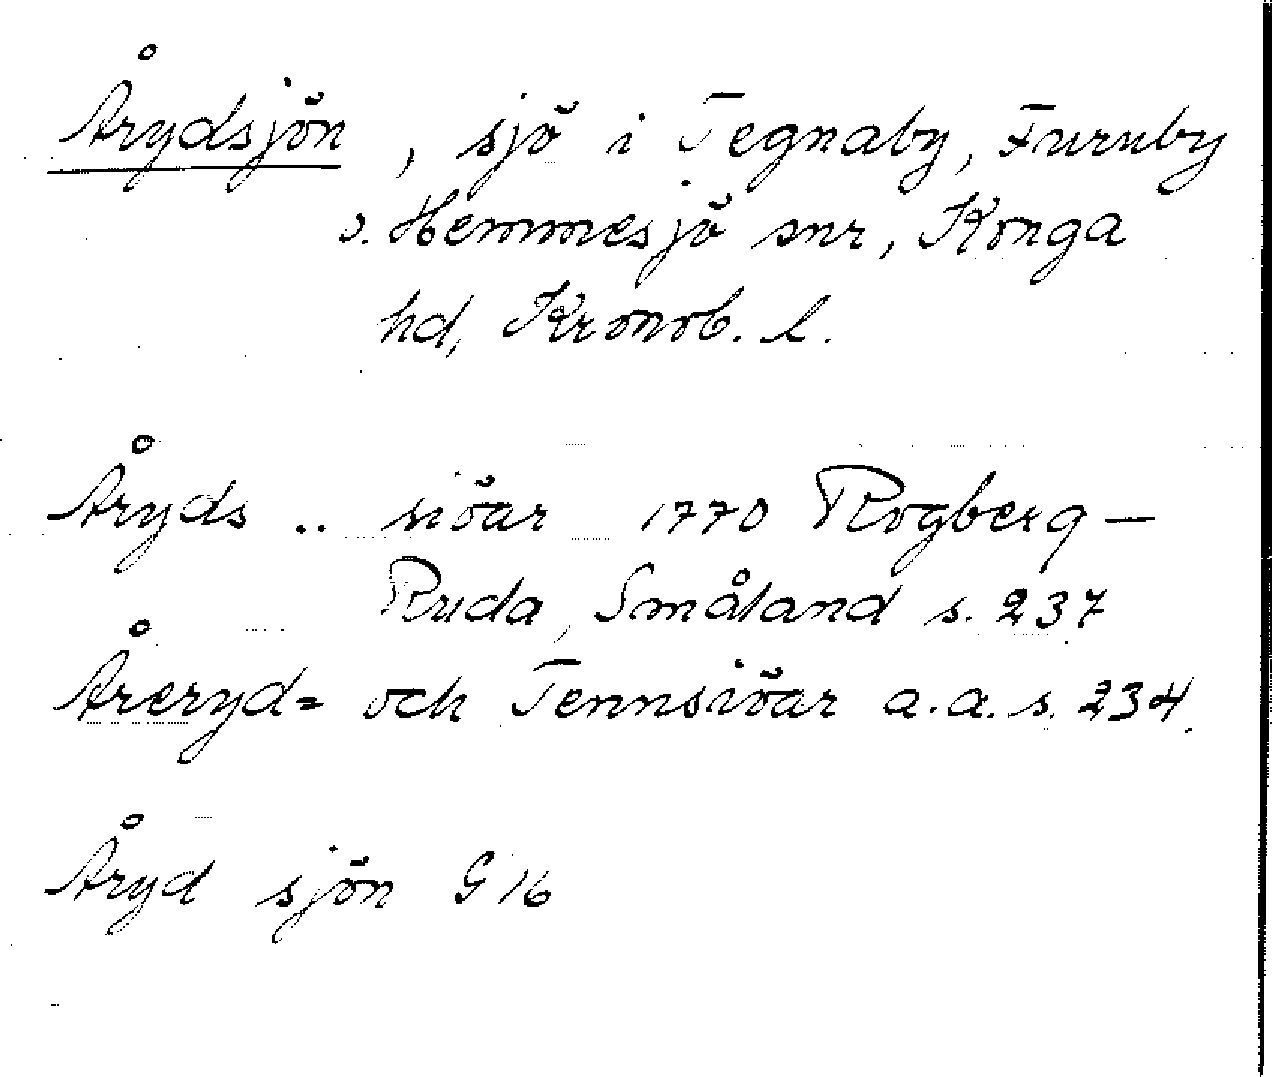 Årydsjön, sjö i Tegnaby, Furuby
o. Hemmesjö snr, Konga
hd, Kronob. l.
Åryds .. siöar 1770 Rogberg –
Ruda, Småland s. 237
Åreryd= och Tennsiöar a.a. s. 234.
Åryd sjön G 16